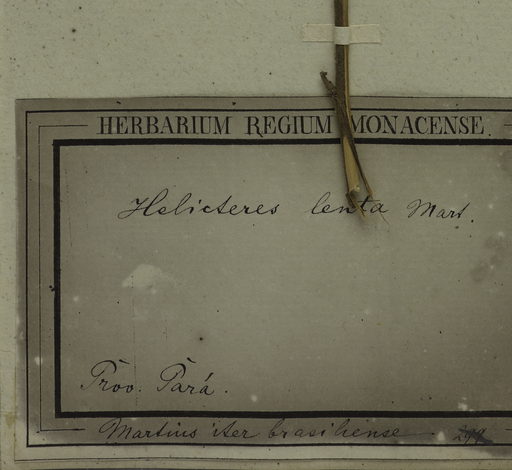 HERBARIUM REGIUM MONACENSE.
Helicteres lenta Mart.
Prov. Pará.
Martius iter brasiliense.